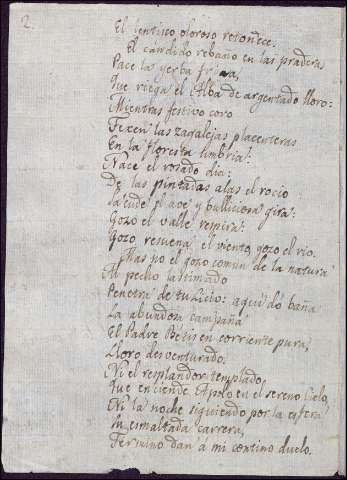 2.
El lentisco oloroso retoñece.
El candido rebaño en las praderas
Pace la yerba fria,
Que riega el Alba de argentado lloro:
Mientras festivo coro
Texen las zagalejas placenteras
En la floresta umbria:
Nace el rosado dia:
De las pintadas alas el rocio
Sacude el ave y bulliciosa gira:
Gozo el valle respira:
Gozo resuena el viento, gozo el rio.
Mas no el gozo comun de la natura
Al pecho lastimado
Penetra de tu Licio: aqui dó baña
La abundosa campaña
El Padre Betis en corriente pura,
Lloro desventurado.
Ni el resplandor templado,
Que enciende Apolo en el sereno cielo,
Ni la noche siguiendo por la esfera
Su esmaltada carrera,
Termino dan á mi contino duelo.